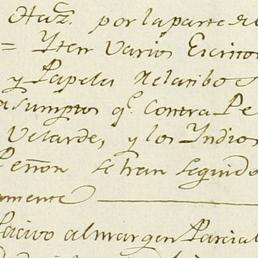 Haz.ᵃ por la parte de
= Yten Varios Escritos
y Papeles
asumptos q.ᵉ contra Pe
Velarde, y los Indios
Peñon se han seguido
amente
al margen Parcial